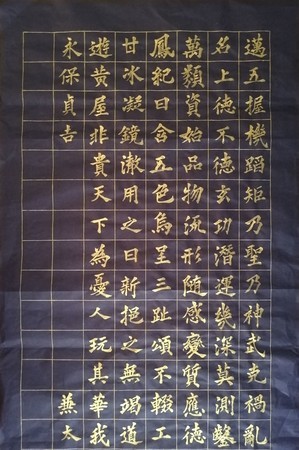 邁五握機蹈矩乃聖乃神武克禍亂
名上德不德玄功潛運幾深莫測鑿
萬類資始品物流形随感變質應德
鳳紀日含五色烏呈三趾頌不輟工
甘冰凝鏡澈用之日新挹之無竭道
遊黄屋非貴天下為憂人玩其華我
永保貞吉
兼太